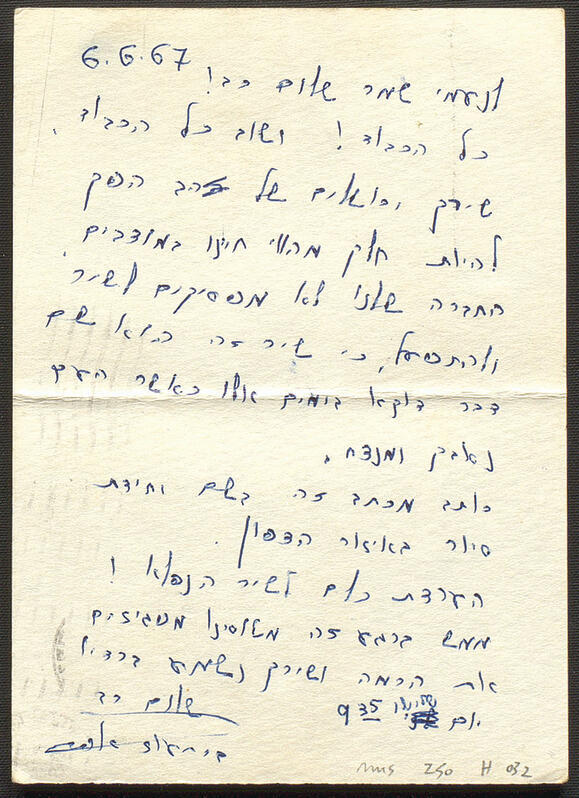 6.6.67
לנעמי שמר שלום רב!
כל הכבוד! ושוב כל הכבוד,
שירך ירושלים של זהב הפך
להיות חלק מהווי חיינו במוצבים.
החברה שלנו לא מפסיקים לשיר
ולהתפעל, כי שיר זה הוא שם
דבר דוקא בימים אלו כאשר העם
נאבק ומנצח.
כותב מכתב זה בשם יחידת
סיור באיזור הצפון.
הערצת כולם לשיר הנפלא!
ממש ברגע זה מטוסינו מפגיזים
את הרמה ושירך נשמע ברדיו
יום שלישי 9:35
שלום רב
MUS 250 H 032